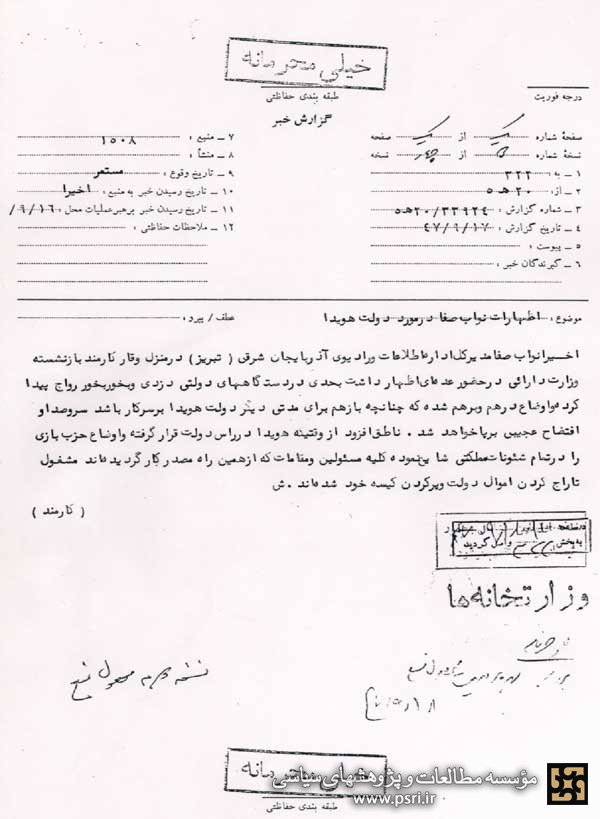 خیلی محرمانه
طبقه بندی حفاظتی
درجه فوریت
گزارش خبر
صفحهٔ شماره یک از یک صفحه
نسخهٔ شماره از چهار نسخه
۱ – به: ۳۲۲
۲ – از: ۲۰ ه‍ ۵
۳ – شماره گزارش: ۳۳۹۲۴/۲۰ه‍۵
۴ – تاریخ گزارش: ۴۷/۹/۱۷
۵ – پیوست:
۶ – گیرندگان خبر:
۷ – منبع: ۱۵۰۸
۸ – منشأ:
۹ – تاریخ وقوع: مستمر
۱۰ – تاریخ رسیدن خبر به منبع: اخیرا
۱۱ – تاریخ رسیدن خبر برهبر عملیات محل: ۹/۱۶/
۱۲ – ملاحظات حفاظتی:
موضوع: اظهارات نواب صفا در مورد دولت هویدا
عطف / پیرو:
اخیرا نواب صفا مدیرکل اداره اطلاعات و رادیوی آذربایجان شرقی ( تبریز ) در منزل وقار کارمند بازنشسته
وزارت دارائی در حضور عده‌ای اظهار داشت بحدی در دستگاههای دولتی دزدی و بخور بخور رواج پیدا
کرده و اوضاع درهم و برهم شده که چنانچه بازهم برای مدتی دیگر دولت هویدا بر سرکار باشد سر و صدا و
افتضاح عجیبی برپا خواهد شد . ناطق افزود از وقتیکه هویدا در راس دولت قرار گرفته و اوضاع حزب بازی
را در تمام شئونات مملکتی شایع نموده کلیه مسئولین و مقامات که از همین راه مصدر کار گردیده‌اند مشغول
تاراج کردن اموال دولت و پر کردن کیسه خود شده‌اند . ش
( کارمند )
به بخش واصل گردید
وزارتخانه‌ها
خیلی محرمانه
طبقه بندی حفاظتی
مؤسسه مطالعات و پژوهشهای سیاسی
www.psri.ir